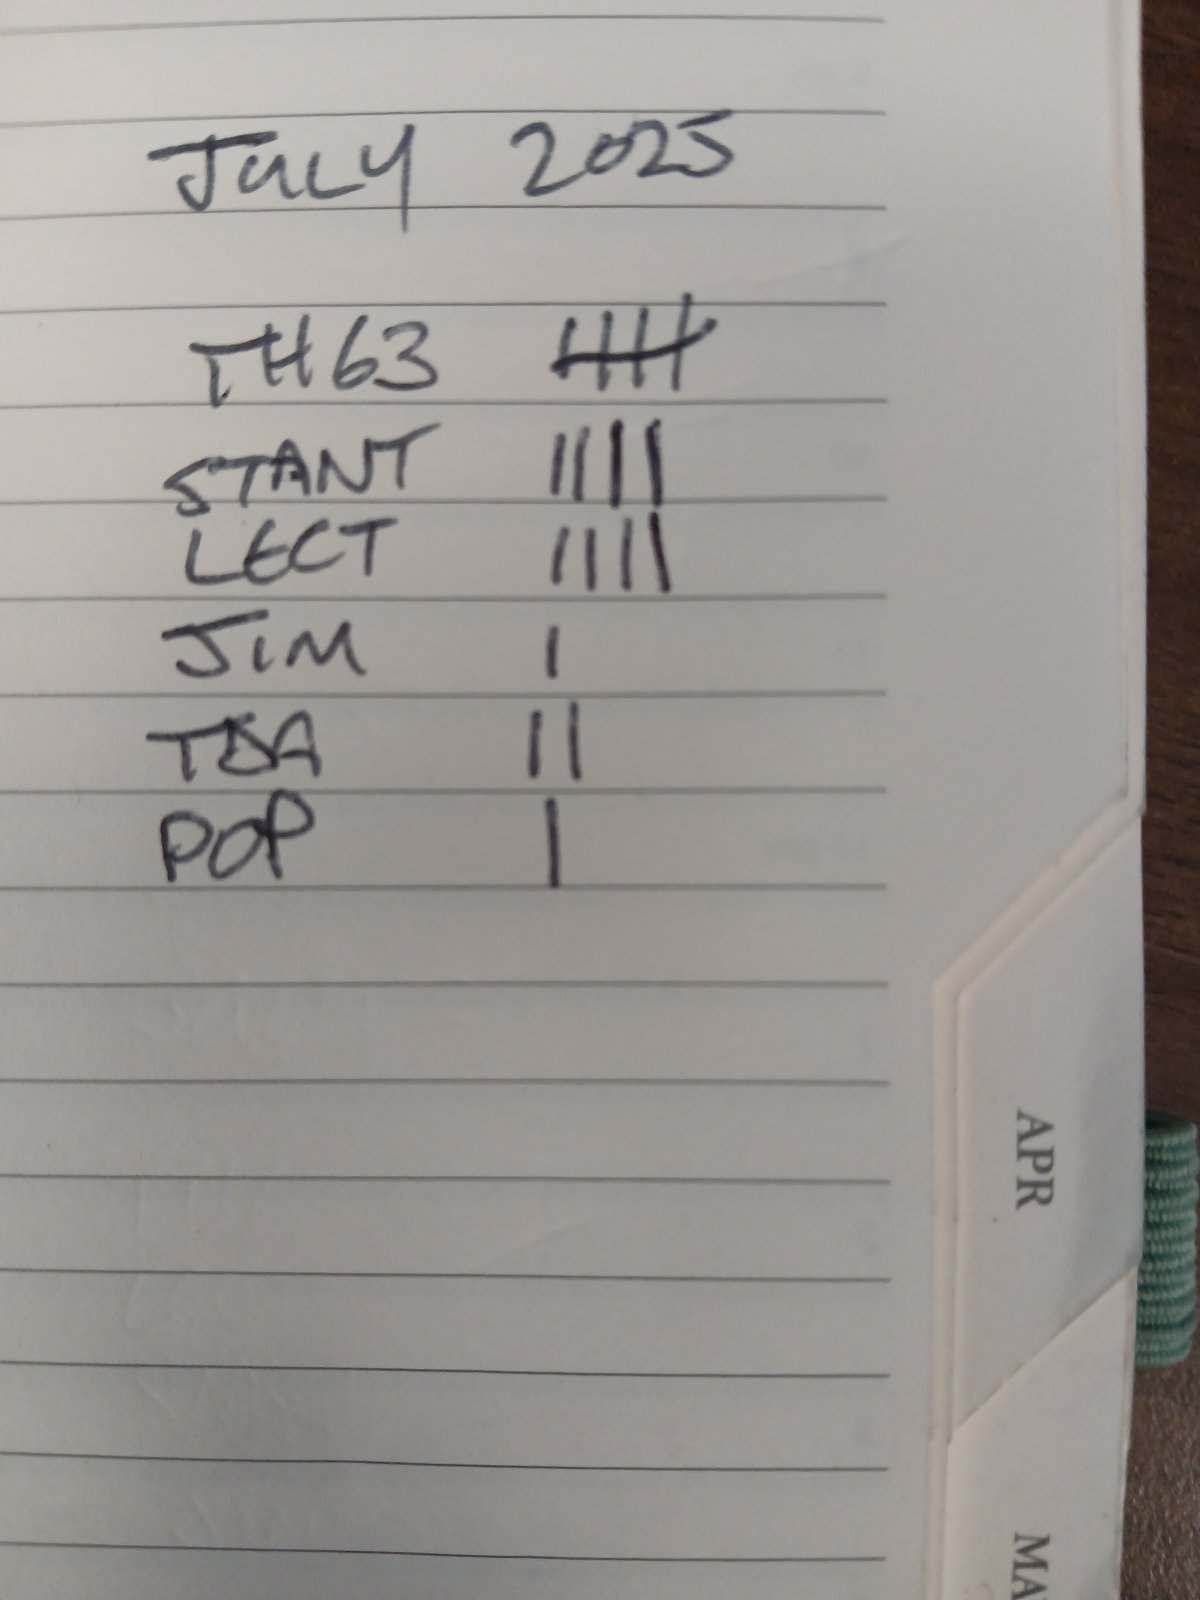 JULY 2025
TH63 卌
STANT ||||
LECT ||||
JIM |
TBA ||
POP |
APR
MA